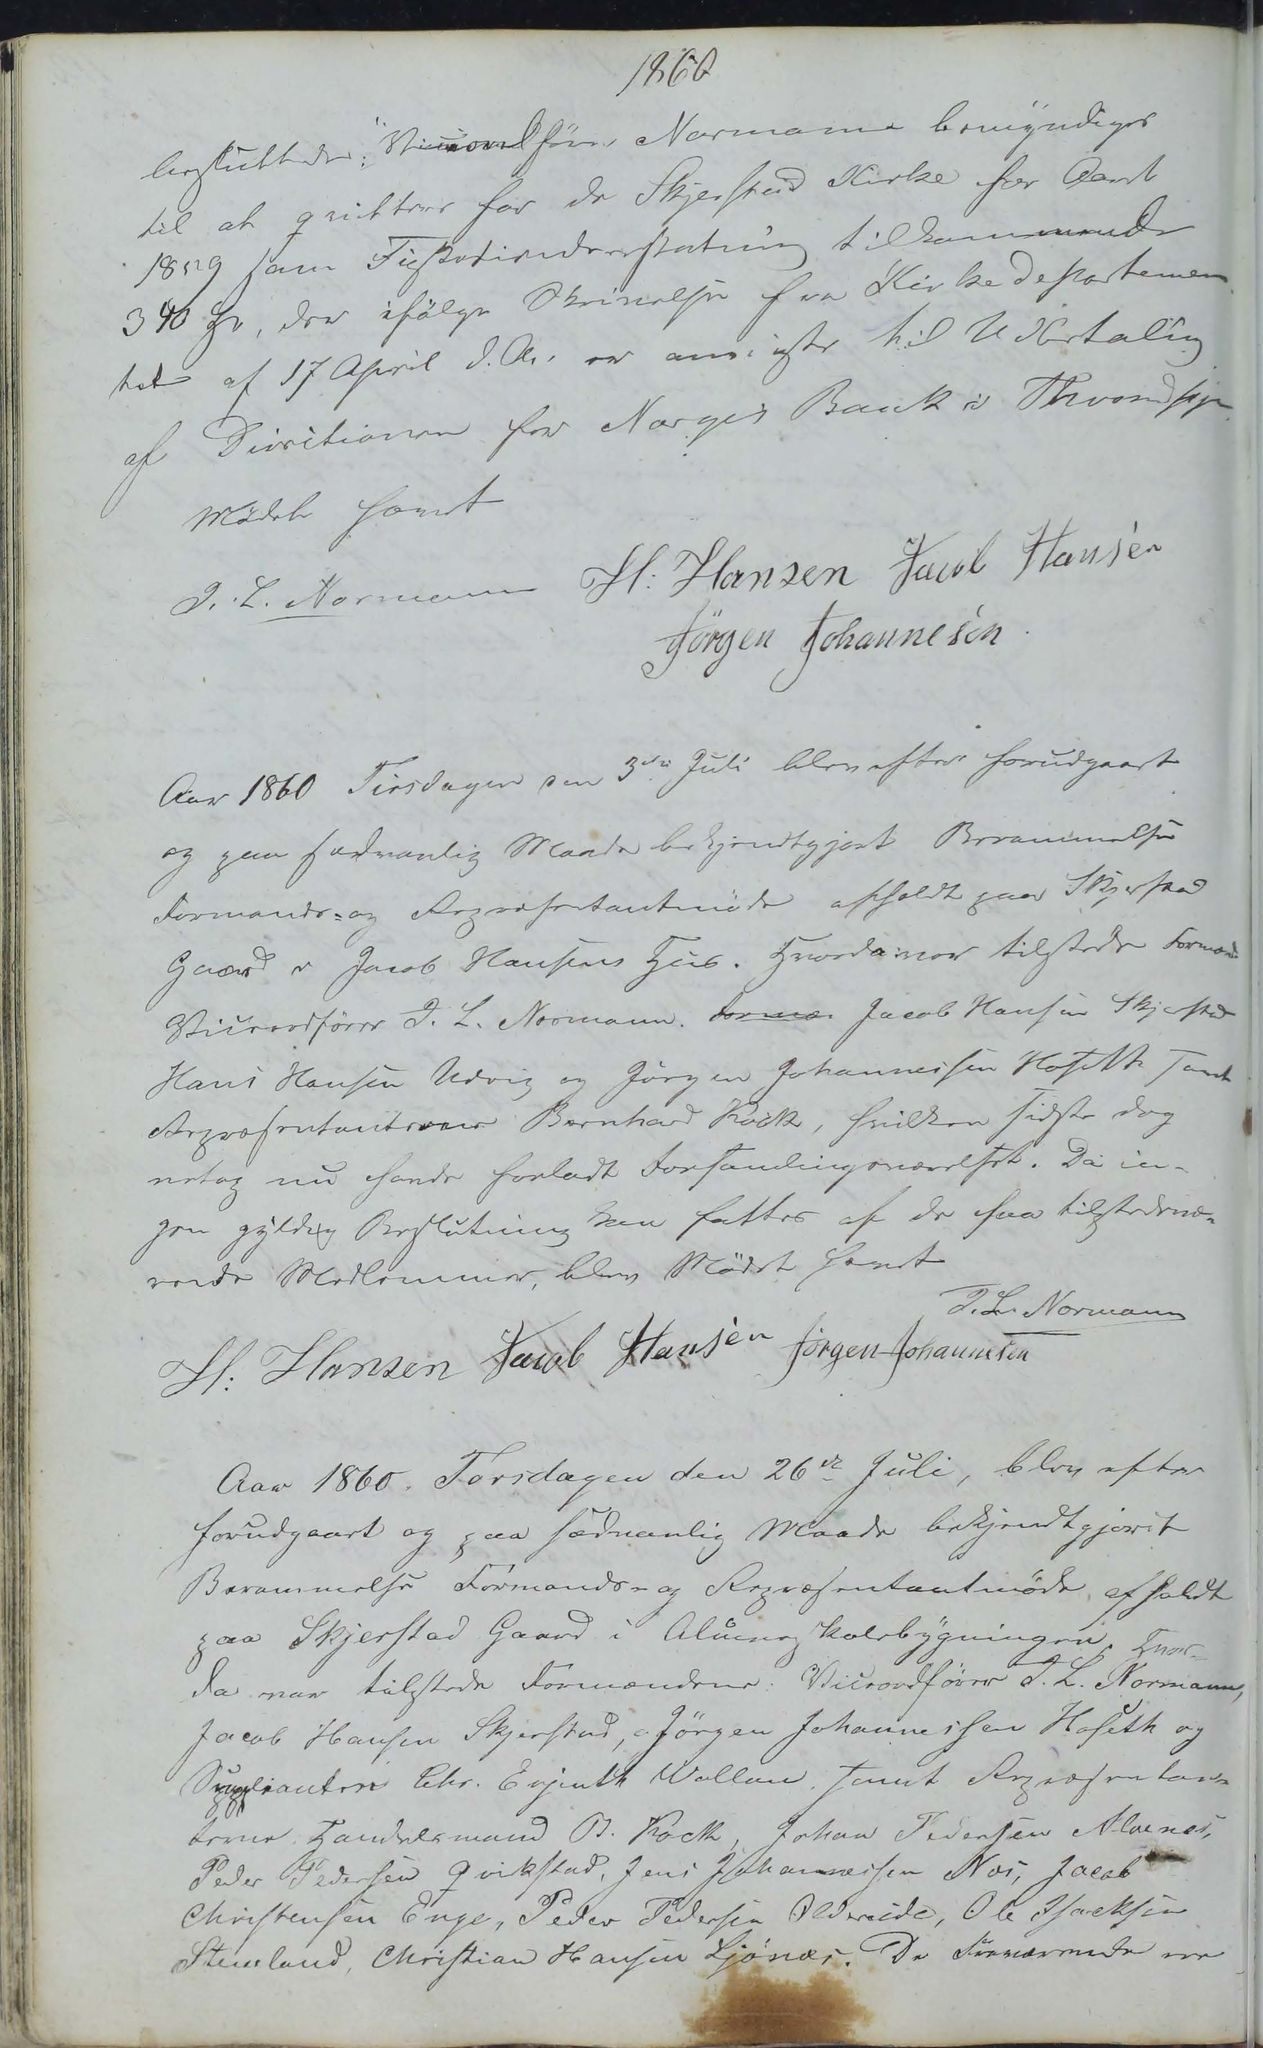 1860
besluttede: "Viceordfører Normann bemyndiges
til at qvittere for de Skjerstad Kirke for Aaret
1859 som Fisketiendeerstatning tilkommende
340 ß, der ifølge Skrivelse fra Kirkedepartemen
tet af 17 April d. A. er anviste til Udbetaling
af Directionen for Norges Bank i Throndhjem
Mødet hævet
J. L. Normann H: Hansen Jacob Hansen
Jörgen Johannesén.
Aar 1860 Tirsdagen den 3die Juli blev efter forudgaaet
og paa sædvanlig Maade bekjendtgjort Berammelse
Formands- og Repræsentantmøde afholdt paa Skjerstad
Gaard i Jacob Hansens Huus. Hvorda var tilstede Formænd
Viceordfører J. L. Normann. Jacob Hansen Skjerstad
Hans Hansen Udvig og Jörgen Johannessen Hoseth samt
Repræsentanterne Bernhard Koch, hvilken sidste dog
netop nu havde forladt Forsamlingsværelset. Da in-
gen gyldig Beslutning kan fattes af de faa tilstedevæ-
rende Medlemmer, blev Mødet hævet
J. L. Normann
H: Hansen Jacob Hansén Jörgen Johannesen
Aar 1860. Torsdagen den 26de Juli, blev efter
forudgaaet og paa sædvanlig Maade bekjendtgjort
Berammelse Formands- og Repræsentantmøde afholdt
paa Skjerstad Gaard i Almueskolebygningen. Hvor-
da var tilstede Formændene: Viceordfører J. L. Normann,
Jacob Hansen Skjerstad, Jörgen Johannessen Hoseth og
Suppleanten Chr. Evjenth Wollan. samt Repræsentan-
terne Handelsmand B. Koch, Johan Pedersen Alvenes,
Peder Pedersen Qvikstad, Jens Johannessen Næs, Jacob
Christensen Enge, Peder Pedersen Oldereide, Ole Isacksen
Stemland, Christian Hansen Ljönæs. De Fraværende var